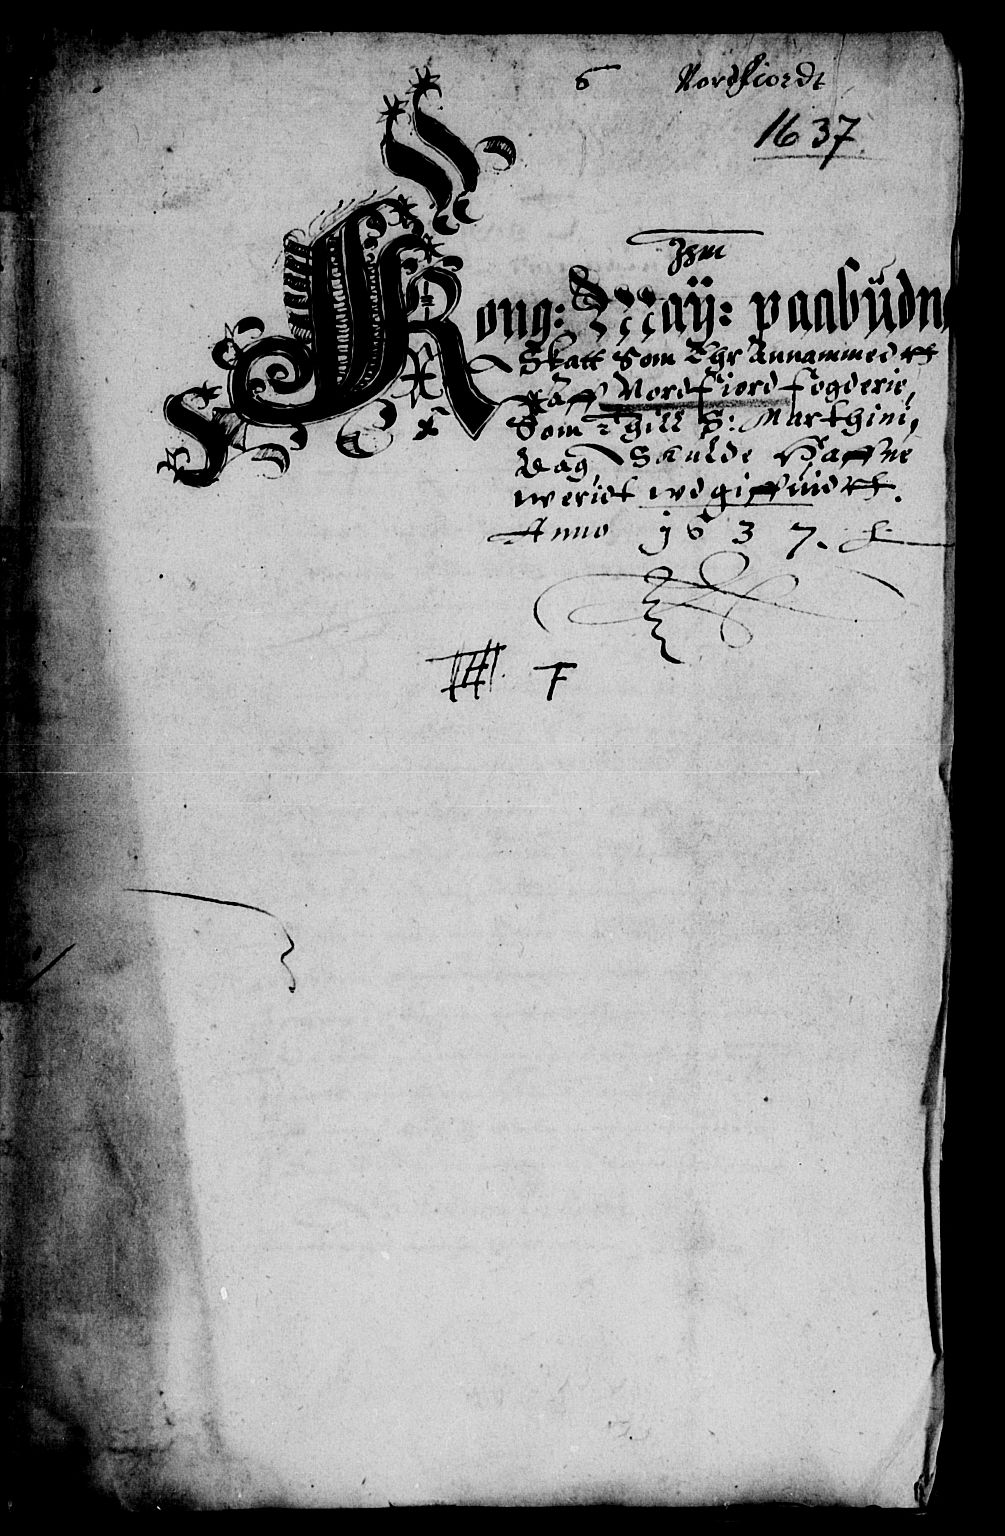 6 Nordfiordt
1637.
Kong: Maÿ: paabüdn
Skatt som Ehr Annammedtt
Aff Nordfiord fogderie,
Som Thill S: Marthini,
Dag, Skulde Haffue
weridt wdgiffuidtt.
Anno 1637.